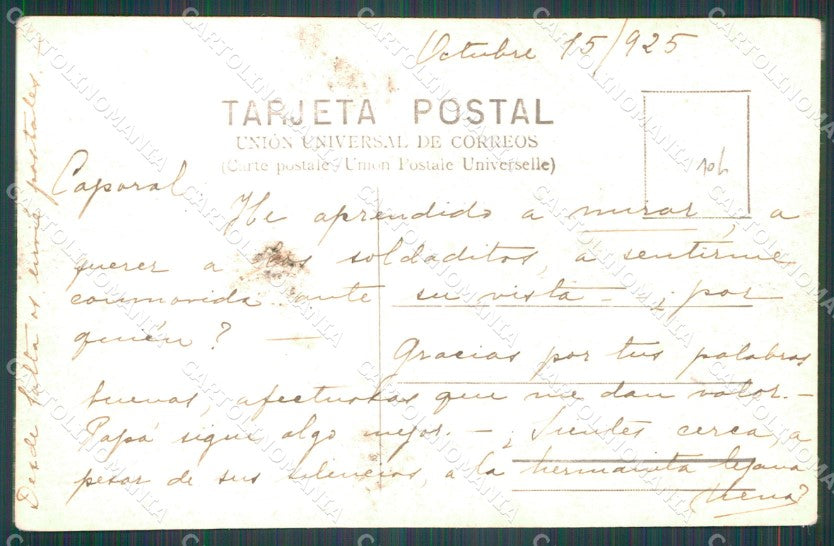 Octubre 15/925
TARJETA POSTAL
UNIÓN UNIVERSAL DE CORREOS
(Carte postale-Union Postale Universelle)
10h
Caporal
He aprendido a mirar, a
querer a los soldaditos, a sentirme
conmovida ante su vista - ¿por
quién? —
Gracias por tus palabras
buenas, afectuosas que me dan valor. -
Papá sigue algo mejor. - ¿Sientes cerca, a
pesar de sus silencios, a la hermanita lejana
Desde Salta os envié postales.
CARTOLINOMANIA